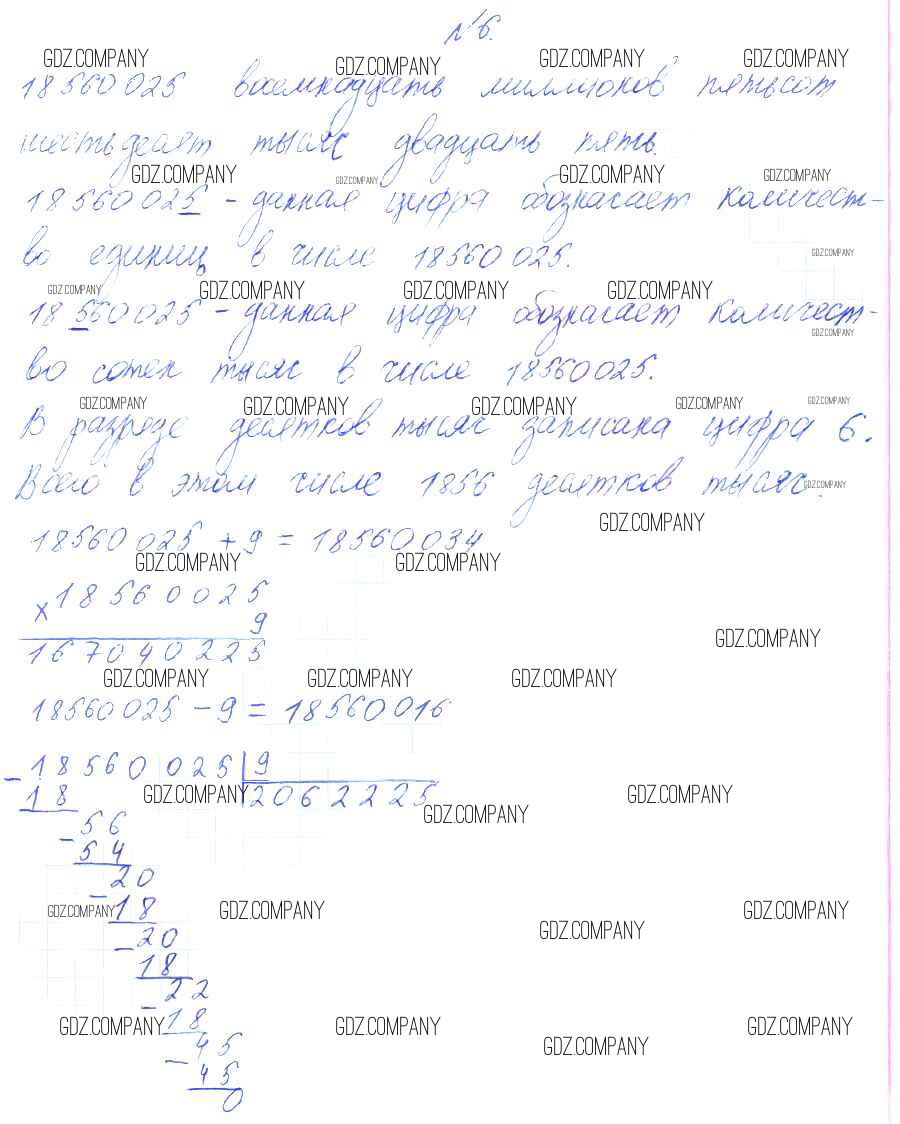 №6.
GDZ.COMPANY GDZ.COMPANY GDZ.COMPANY GDZ.COMPANY
18560025 восемнадцать миллионов пятьсот
шестьдесят тысяч двадцать пять.
GDZ.COMPANY GDZ.COMPANY GDZ.COMPANY GDZ.COMPANY
18560025 - данная цифра обозначает количест-
во единиц в числе 18560025.
GDZ.COMPANY
GDZ.COMPANY GDZ.COMPANY GDZ.COMPANY GDZ.COMPANY
18560025 - данная цифра обозначает количест-
GDZ.COMPANY
во сотен тысяч в числе 18560025.
GDZ.COMPANY GDZ.COMPANY GDZ.COMPANY GDZ.COMPANY GDZ.COMPANY
В разряде десятков тысяч записана цифра 6.
Всего в этом числе 1856 десятков тысяч.
GDZ.COMPANY
GDZ.COMPANY
18560025 + 9 = 18560034
GDZ.COMPANY GDZ.COMPANY
×18560025
9
GDZ.COMPANY
167040225
GDZ.COMPANY GDZ.COMPANY GDZ.COMPANY
18560025 - 9 = 18560016
-18560025 9
18 GDZ.COMPANY 2062225 GDZ.COMPANY
GDZ.COMPANY
-56
54
-20
GDZ.COMPANY 18 GDZ.COMPANY GDZ.COMPANY
GDZ.COMPANY
-20
18
-22
GDZ.COMPANY 18 GDZ.COMPANY GDZ.COMPANY
GDZ.COMPANY
-45
45
0